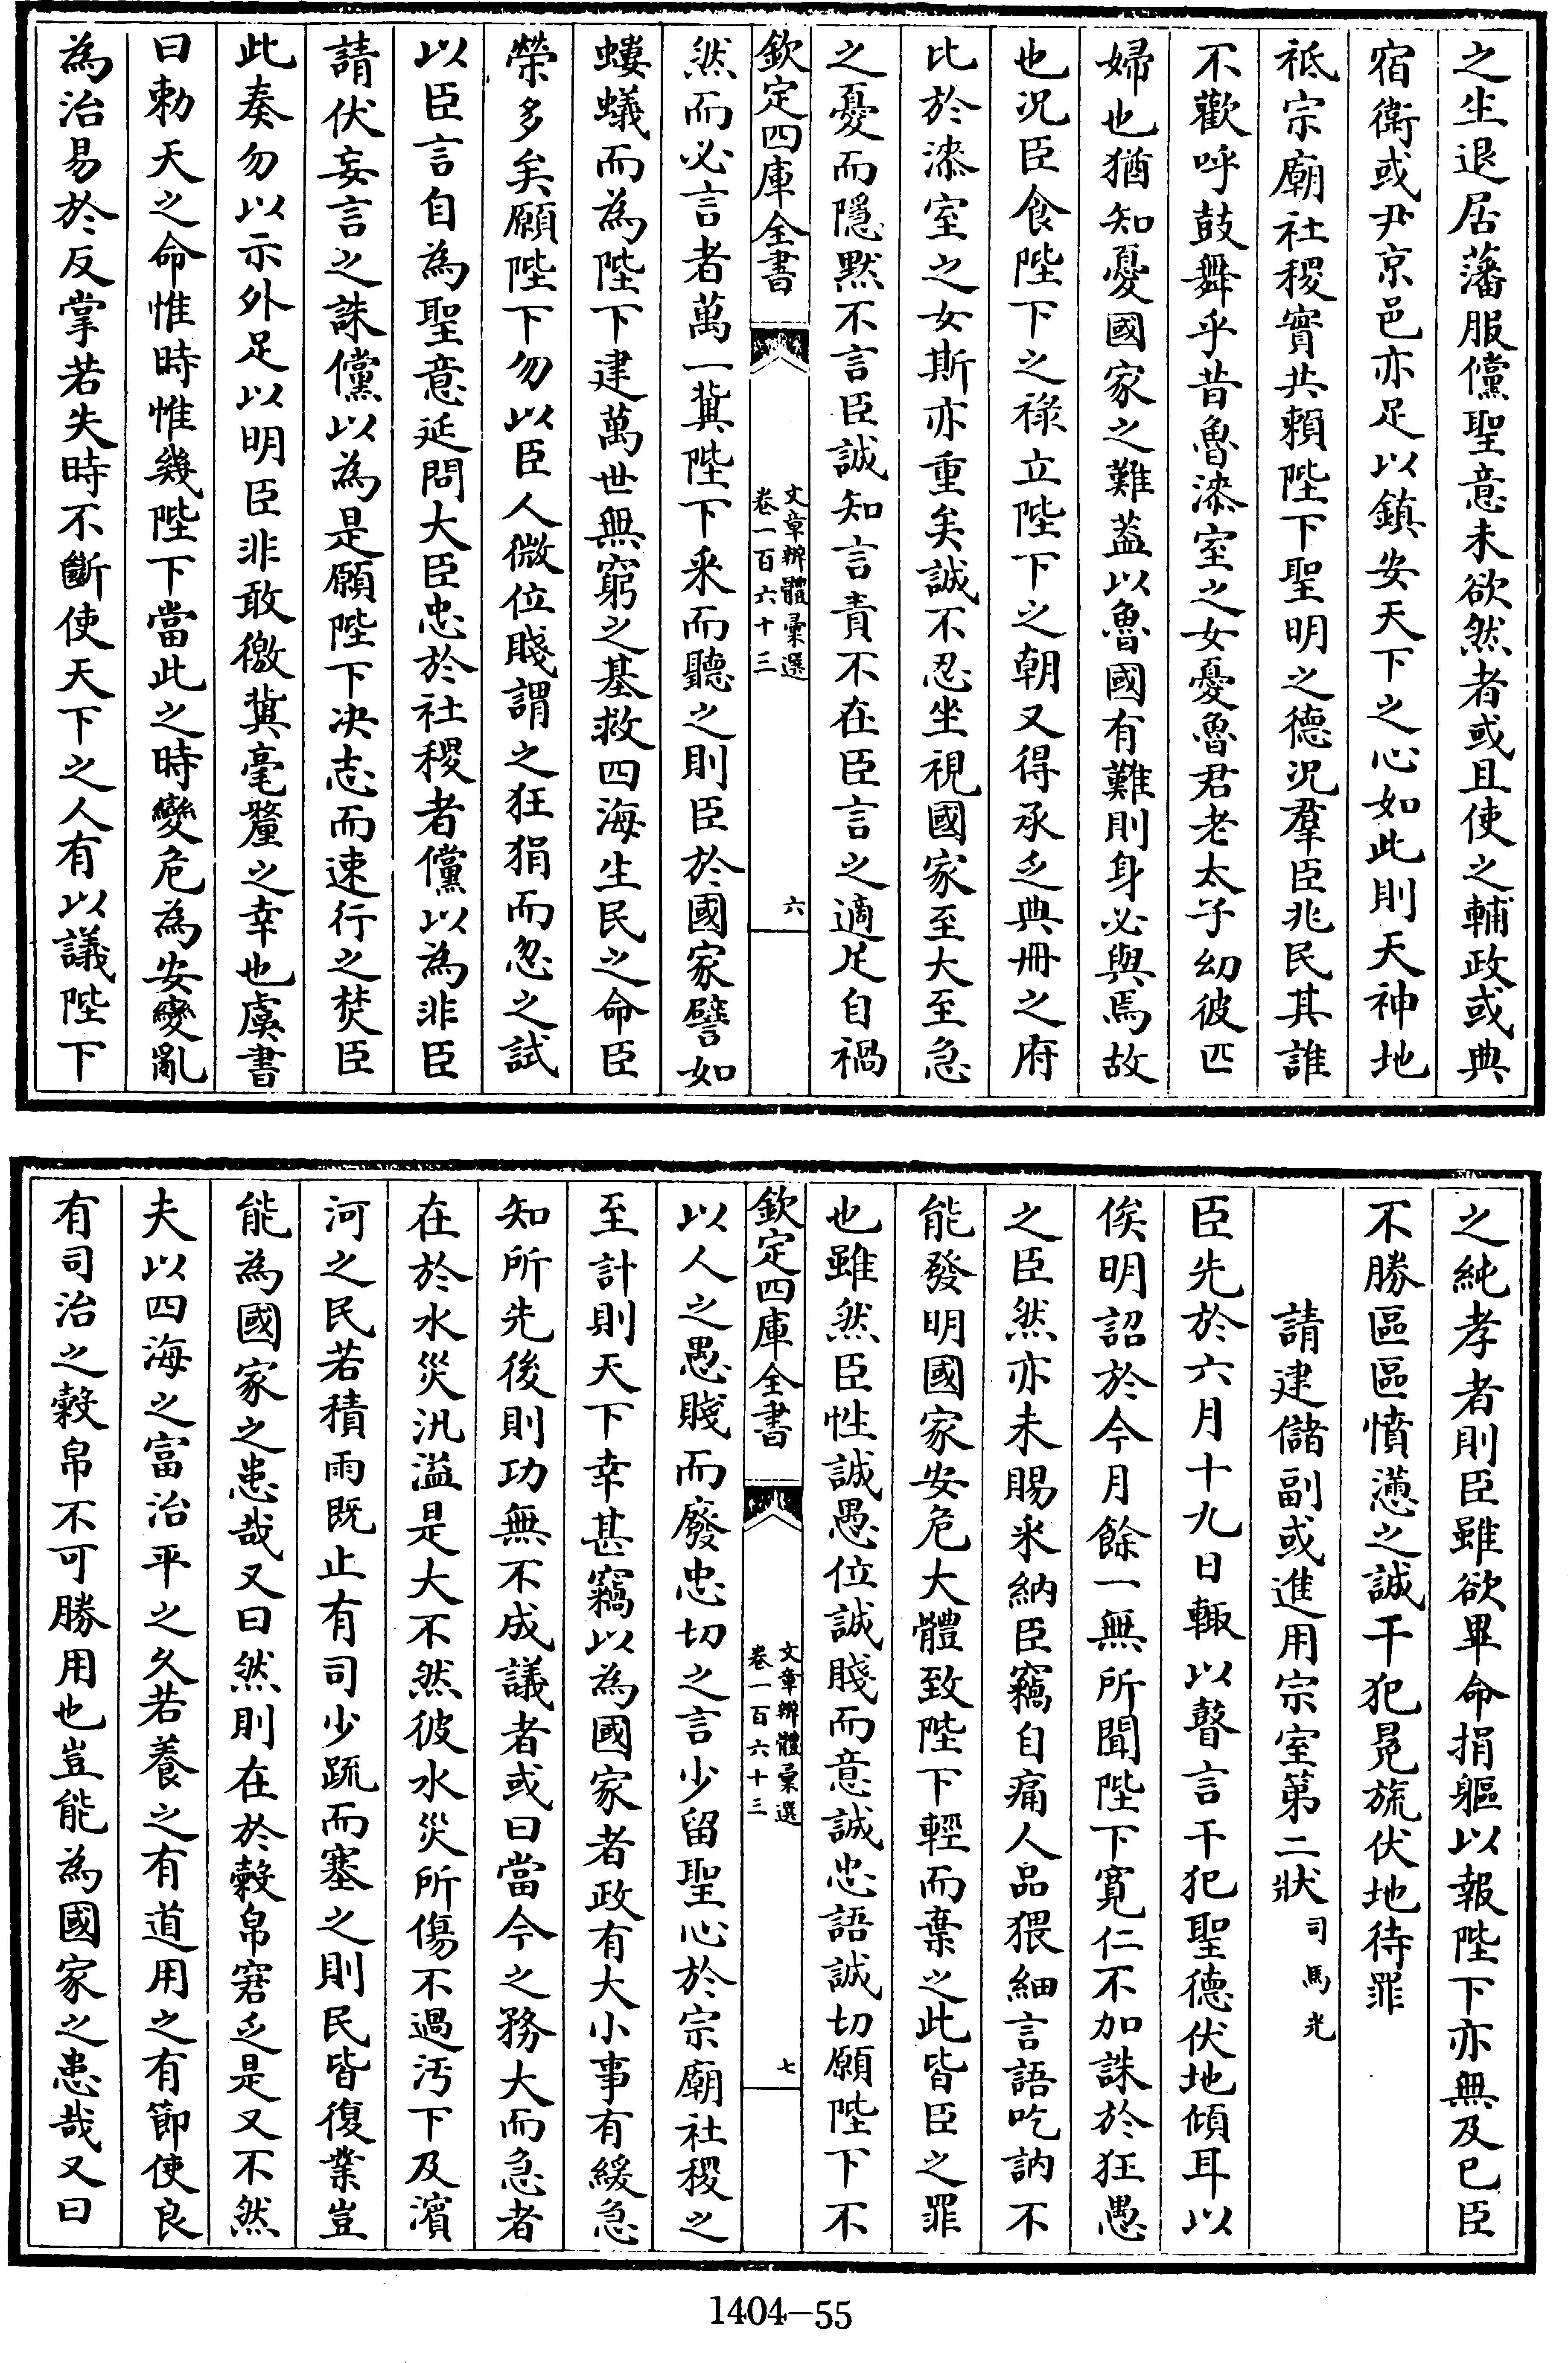 之生退居藩服儻聖意未欲然者或且使之輔政或典
宿衛或尹京邑亦足以鎮安天下之心如此則天神地
祗宗廟社稷實共賴陛下聖明之德況羣臣兆民其誰
不歡呼鼓舞乎昔魯漆室之女憂魯君老太子幼彼匹
婦也猶知憂國家之難蓋以魯國有難則身必與焉故
也況臣食陛下之祿立陛下之朝又得承乏典冊之府
比於漆室之女斯亦重矣誠不忍坐視國家至大至急
之憂而隱默不言臣誠知言責不在臣言之適足自禍
欽定四庫全書
文章辨體彙選
卷一百六十三
六
然而必言者萬一冀陛下采而聽之則臣於國家譬如
螻蟻而為陛下建萬世無窮之基救四海生民之命臣
榮多矣願陛下勿以臣人微位賤謂之狂狷而忽之試
以臣言自為聖意延問大臣忠於社稷者儻以為非臣
請伏妄言之誅儻以為是願陛下決志而速行之焚臣
此奏勿以示外足以明臣非敢徼冀毫釐之幸也虞書
曰勅天之命惟時惟幾陛下當此之時變危為安變亂
為治易於反掌若失時不斷使天下之人有以議陛下
之純孝者則臣雖欲畢命捐軀以報陛下亦無及已臣
不勝區區憤懣之誠干犯冕旒伏地待罪
請建儲副或進用宗室第二狀 司馬光
臣先於六月十九日輒以瞽言干犯聖德伏地傾耳以
俟明詔於今月餘一無所聞陛下寛仁不加誅於狂愚
之臣然亦未賜采納臣竊自痛人品猥細言語吃訥不
能發明國家安危大體致陛下輕而棄之此皆臣之罪
也雖然臣性誠愚位誠賤而意誠忠語誠切願陛下不
欽定四庫全書
文章辨體彙選
卷一百六十三
七
以人之愚賤而廢忠切之言少留聖心於宗廟社稷之
至計則天下幸甚竊以為國家者政有大小事有緩急
知所先後則功無不成議者或曰當今之務大而急者
在於水災汎溢是大不然彼水災所傷不過汚下及濵
河之民若積雨既止有司少疏而塞之則民皆復業豈
能為國家之患哉又曰然則在於穀帛窘乏是又不然
夫以四海之富治平之久若養之有道用之有節使良
有司治之穀帛不可勝用也豈能為國家之患哉又曰
1404-55